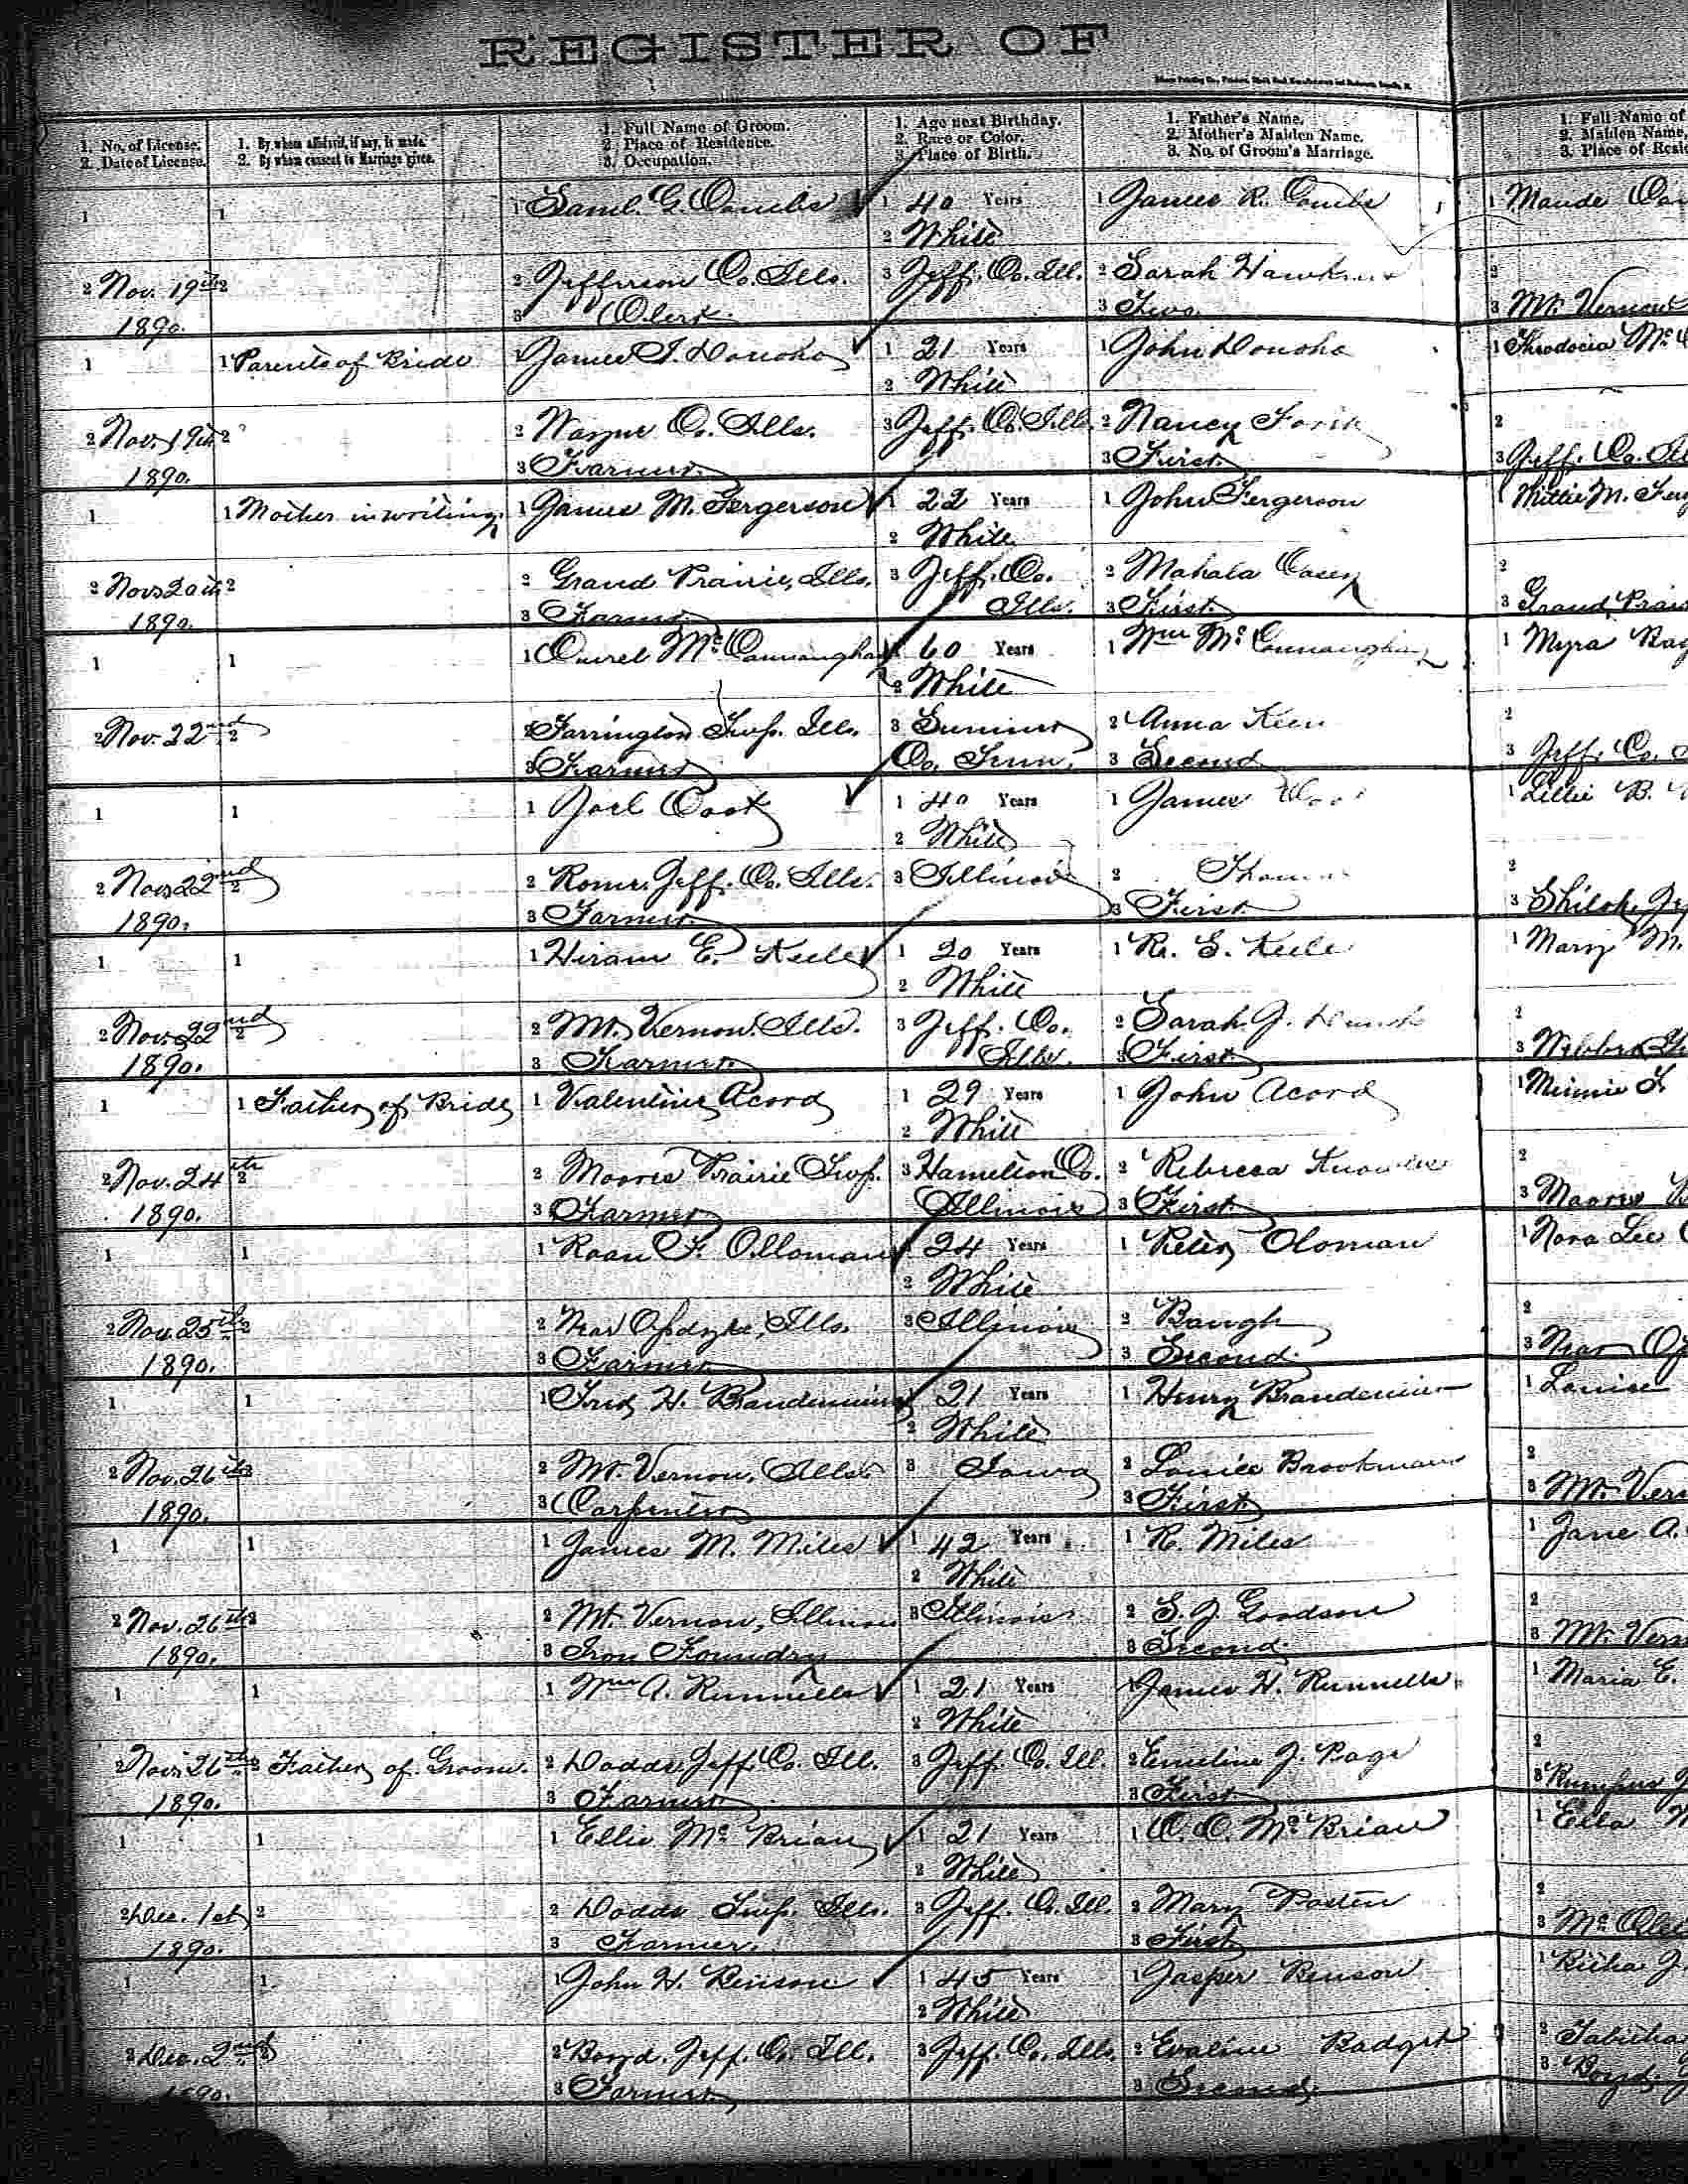 REGISTER OF
1. No. of License.
2. Date of License.
1. By whom affidavit, if any, is made.
2. By whom consent to Marriage given.
1. Full Name of Groom.
2. Place of Residence.
3. Occupation.
1. Age next Birthday.
2. Race or Color.
3. Place of Birth.
1. Father's Name.
2. Mother's Maiden Name.
3. No. of Groom's Marriage.
1. Full Name of
2. Maiden Name,
3. Place of Resid
1 1 1 Saml. G. Combs 1 40 Years 1 James R. Combs 1 Maude
2 White
2 Nov. 19th 2 2 Jefferson Co. Ills. 3 Jeff. Co. Ill. 2 Sarah 2
1890. 3 Clerk 3 Two 3 Mt. Vernon
1 1 Parents of Bride 1 James I. Donoho 1 21 Years 1 John Donoho 1 Theodocia Mc
2 White
2 Nov. 19th 2 2 Wayne Co. Ills. 3 Jeff. Co. Ills. 2 Nancy 2
1890. 3 Farmer 3 First 3 Jeff. Co.
1 1 Mother in writing 1 James M. Fergerson 1 22 Years 1 John Fergerson 1 Millie M.
2 White
2 Nov. 20th 2 2 Grand Prairie, Ills. 3 Jeff. Co. 2 Mahala Casey 2
1890. 3 Farmer Ills. 3 First 3 Grand
1 1 1 60 Years 1 Wm Mc 1 Myra
2 White
2 Nov. 22nd 2 2 Farrington Twp. Ills. 3 Sumner 2 Anna Keen 2
3 Farmer Co. Tenn. 3 Second 3 Jeff. Co.
1 1 1 Joel Cook 1 40 Years 1 James 1 Lillie B.
2 White
2 Nov. 22nd 2 2 Rome, Jeff. Co. Ills. 3 Illinois 2 2
1890. 3 Farmer 3 First 3 Shiloh,
1 1 1 Hiram E. Keele 1 20 Years 1 R. S. Keele 1 Mary M.
2 White
2 Nov. 22nd 2 2 Mt. Vernon. Ills. 3 Jeff. Co. 2 Sarah J. 2
1890. 3 Farmer Ills. 3 First 3
1 1 Father of Bride 1 Valentine Acord 1 29 Years 1 John Acord 1 Minnie F.
2 White
2 Nov. 24th 2 2 Moores Prairie Twp. 3 Hamilton Co. 2 Rebecca 2
1890. 3 Farmer Illinois 3 First 3 Moores
1 1 1 Roan F. Olloman 1 24 Years 1 Peter Oloman 1 Nora Lee
2 White
2 Nov. 25th 2 2 Near Opdyke, Ills. 3 Illinois 2 Baugh 2
1890. 3 Farmer 3 Second 3 Near
1 1 1 Fred H. 1 21 Years 1 Henry 1 Louise
2 White
2 Nov. 26th 2 2 Mt. Vernon, Ills. 3 Iowa 2 Louise Brookman 2
1890. 3 Carpenter 3 First 3 Mt. Vern
1 1 1 James M. Miles 1 42 Years 1 R. Miles 1 Jane A.
2 White
2 Nov. 26th 2 2 Mt. Vernon, Illinois 3 Illinois 2 S. J. Goodson 2
1890. 3 Iron Foundry 3 Second 3 Mt. Vern
1 1 1 Wm A. Runnells 1 21 Years 1 James H. Runnells 1 Maria E.
2 White
2 Nov. 26th 2 Father of Groom. 2 Dodds, Jeff. Co. Ill. 3 Jeff. Co. Ill. 2 Emeline J. Page 2
1890. 3 Farmer 3 First 3
1 1 1 Ellis Mc Brian 1 21 Years 1 C. C. Mc Brian 1 Ella
2 White
2 Dec. 1st 2 2 Dodds Twp. Ills. 3 Jeff. Co. Ill. 2 Mary 2
1890. 3 Farmer. 3 First 3
1 1 1 John H. Benson 1 45 Years 1 Jasper Benson 1
2 White
2 Dec. 2nd 2 2 Boyd. Jeff. Co. Ill. 3 Jeff. Co. Ills. 2 Evaline Badget 2 Tabitha
1890. 3 Farmer 3 Second 3 Boyd,